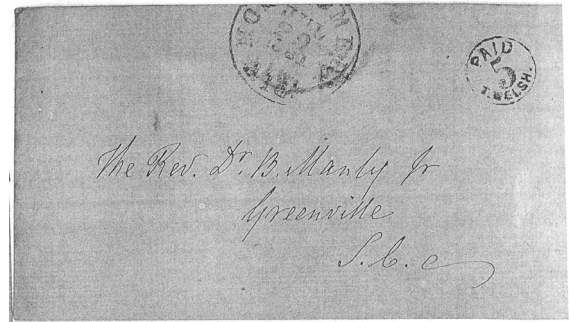 MONTGOMERY
PAID
5
T. WELSH.
The Rev. Dr. B. Manly Jr
Greenville
S. C.